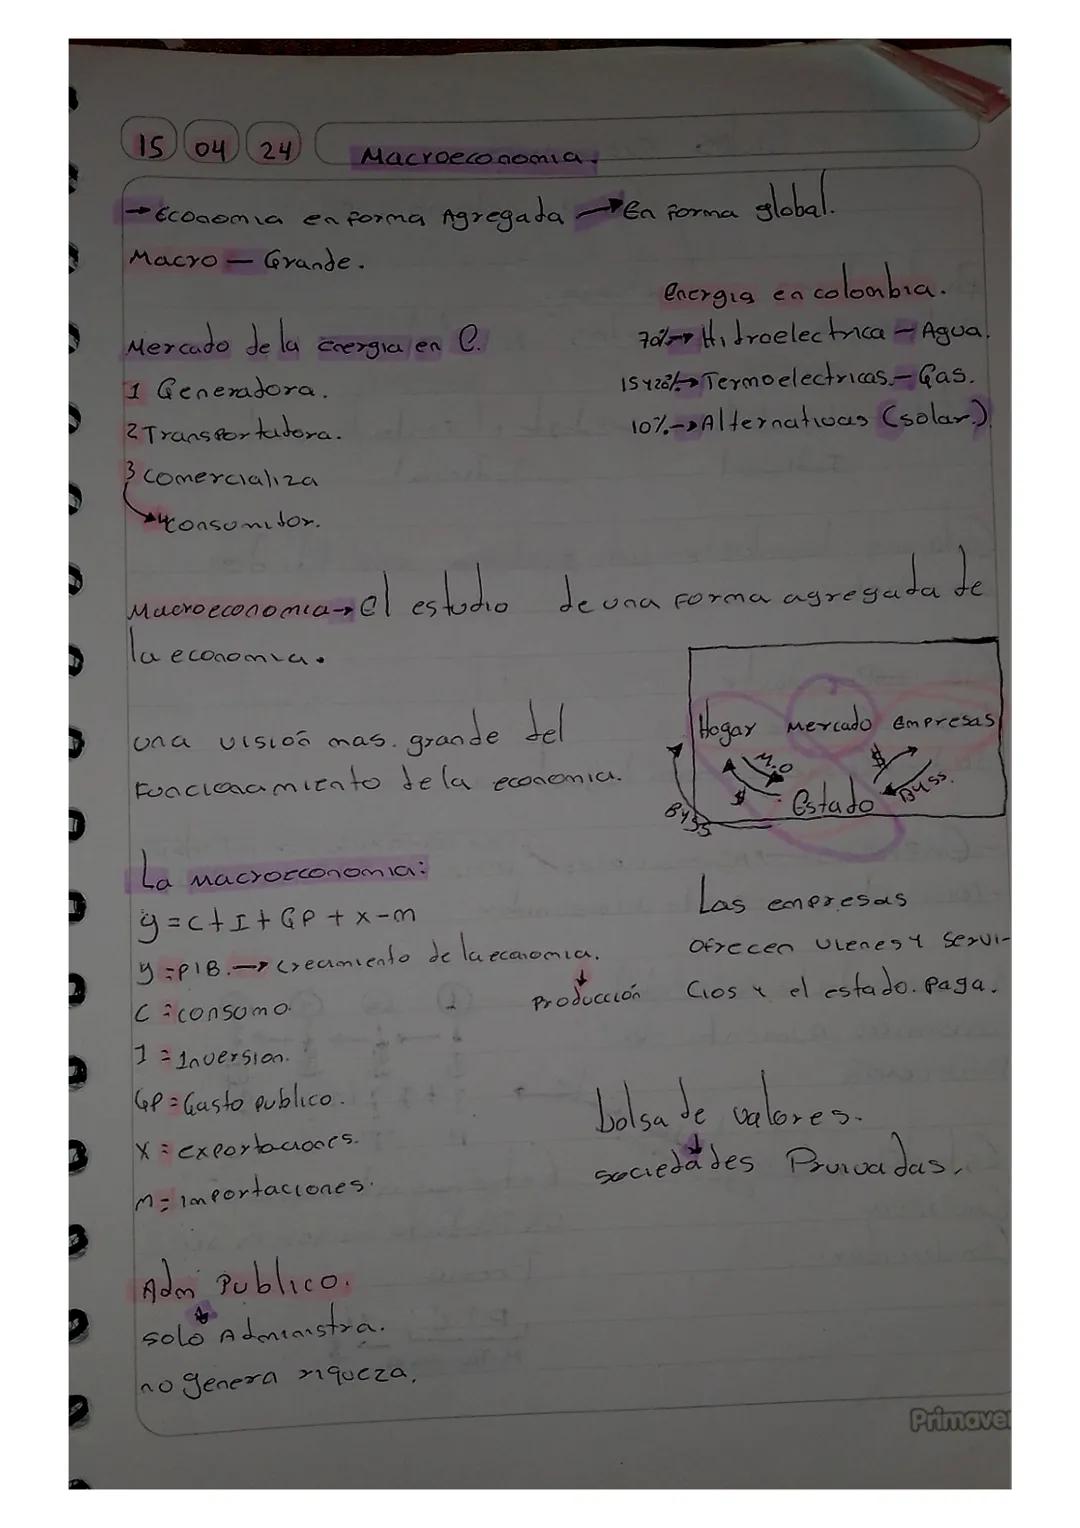 15 04 24 Macroeconomia.
→ Economia en forma Agregada → En forma global.
Macro — Grande.
Energia en colombia.
70% → Hidroelectrica — Agua.
15 y 20% → Termoelectricas. — Gas.
10% → Alternativas (solar.)
Mercado de la energia en C.
1 Generadora.
2 Transportadora.
3 comercializa
→ 4 consumidor.
Macroeconomia → El estudio de una forma agregada de
la economia.
una visión mas. grande del
Funcionamiento de la economia.
Hogar Mercado Empresas
M.O
$
$
Estado
B y SS.
B y SS
La macroeconomia:
y = c + I + GP + x - m
y = PIB. → crecimiento de la economia.
↓
Producción
C = consumo.
I = Inversion.
GP = Gasto publico.
X = exportaciones.
M = importaciones.
Las empresas
ofrecen vienes y servi-
cios y el estado. Paga.
bolsa de valores.
↓
sociedades Privadas.
Adm Publico.
↓
solo Administra.
no genera riqueza.
Primave